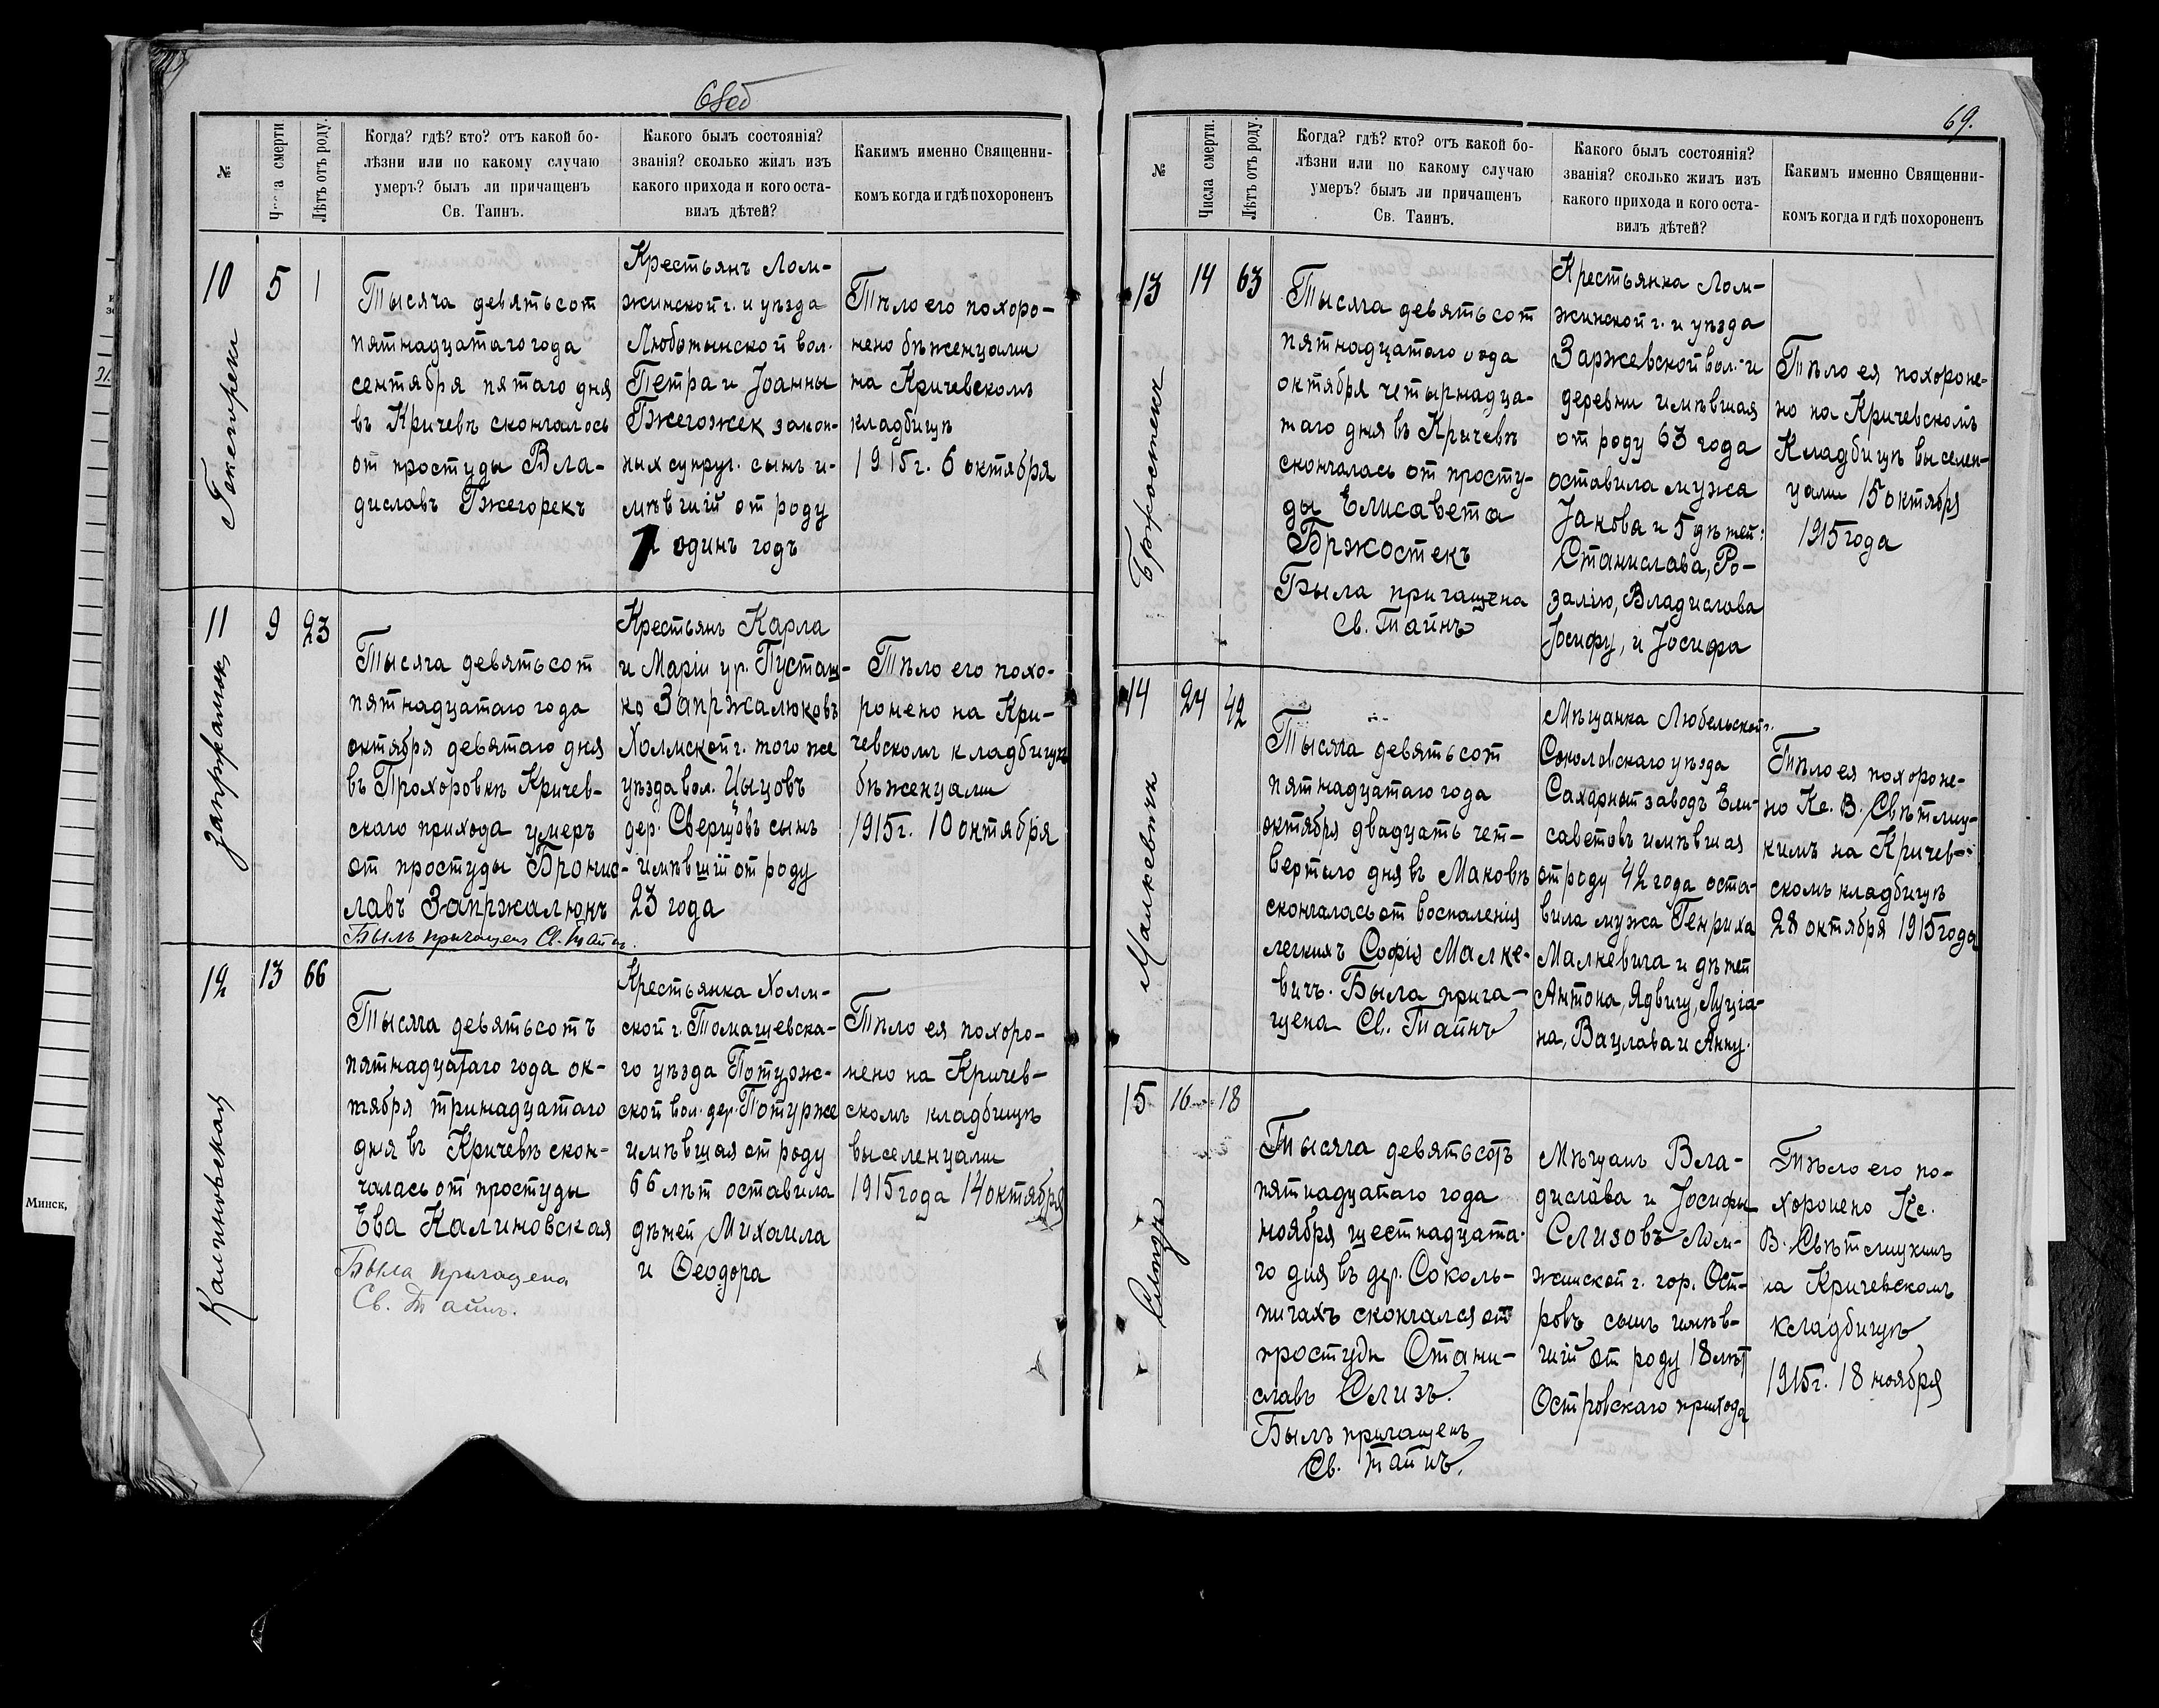 68об
№
Числа смерти
Лѣтъ отъ роду.
Когда? гдѣ? кто? отъ какой бо-
лѣзни или по какому случаю
умеръ? былъ ли причащенъ
Св. Таинъ.
Какого былъ состоянія?
званія? сколько жилъ изъ
какого прихода и кого оста-
вилъ дѣтей?
Какимъ именно Священни-
комъ когда и гдѣ похороненъ
10
5
1
Гжегорекъ
Тысяча девятьсот
пятнадцатаго года
сентября пятаго дня
въ Кричевѣ скончалось
от простуды Вла-
диславъ Гжегорекъ
Крестьянъ Лом-
жинской г. и уѣзда
Люботынской вол.
Петра и Іоанны
Гжегожек закон-
ных супруг. сынъ и-
мѣвшій от роду
1 одинъ годъ
Тѣло его похоро-
нено бѣженцами
на Кричевскомъ
кладбищѣ
1915 г. 6 октября
11
9
23
Запржалюкъ
Тысяча девятьсот
пятнадцатаго года
октября девятаго дня
въ Прохоровкѣ Кричев-
скаго прихода умеръ
от простуды Бронис-
лавъ Запржалюкъ
Былъ причащенъ Св. Таинъ.
Крестьянъ Карла
и Маріи ур. Пусташ-
ко Запржалюковъ
Холмской г. того же
уѣзда вол. Цыцовъ
дер. Сверщовъ сынъ
имѣвшій от роду
23 года
Тѣло его похо-
ронено на Кри-
чевскомъ кладбищѣ
бѣженцами
1915 г. 10 октября
12
13
66
Калиновская
Тысяча девятьсотъ
пятнадцатаго года ок-
тября тринадцатаго
дня въ Кричевѣ скон-
чалась от простуды
Ева Калиновская
Была причащена
Св. Таинъ.
Крестьянка Холм-
ской г. Томашевска-
го уѣзда Потурж-
ской вол. дер. Потурже
имѣвшая от роду
66 лѣт оставила
дѣтей Михаила
и Ѳеодора
Тѣло ея похоро-
нено на Кричев-
скомъ кладбищѣ
выселенцами
1915 года 14 октября
Минск,
69.
№
Числа смерти.
Лѣтъ отъ роду.
Когда? гдѣ? кто? отъ какой бо-
лѣзни или по какому случаю
умеръ? былъ ли причащенъ
Св. Таинъ.
Какого былъ состоянія?
званія? сколько жилъ изъ
какого прихода и кого оста-
вилъ дѣтей?
Какимъ именно Священни-
комъ когда и гдѣ похороненъ
13
14
63
Бржостекъ
Тысяча девятьсот
пятнадцатаго года
октября четырнадца-
таго дня въ Кричевѣ
скончалась от просту-
ды Елисавета
Бржостекъ
Была причащена
Св. Таинъ
Крестьянка Лом-
жинской г. и уѣзда
Заржевской вол. и
деревни имѣвшая
от роду 63 года
оставила мужа
Іакова и 5 дѣтей:
Станислава, Ро-
залію, Владислава
Іосифу, и Іосифа
Тѣло ея похороне-
но на Кричевскомъ
Кладбищѣ выселен-
цами 15 октября
1915 года
14
24
42
Малкевичъ
Тысяча девятьсот
пятнадцатаго года
октября двадцать чет-
вертаго дня въ Маковѣ
скончалась от воспаленія
легкихъ Софія Малке-
вичъ. Была прича-
щена Св. Таинъ
Мѣщанка Любельской г.
Соколовскаго уѣзда
Сахарный заводъ Ели-
саветовъ имѣвшая
от роду 42 года оста-
вила мужа Генриха
Малкевича и дѣтей
Антона, Ядвигу, Луціа-
на, Вацлава и Анну.
Тѣло ея похороне-
но Кс. В. Свѣтлиц-
кимъ на Кричев-
скомъ кладбищѣ
28 октября 1915 года
15
16
18
Слизъ
Тысяча девятьсотъ
пятнадцатаго года
ноября шестнадцата-
го дня въ дер. Соколь-
ничахъ скончался от
простуды Стани-
славъ Слизъ.
Былъ причащенъ
Св. Таинъ.
Мѣщанъ Вла-
дислава и Іосифы
Слизовъ Лом-
жинской г. гор. Ост-
ровъ сынъ имѣв-
шій от роду 18 лѣт
Островскаго прихода
Тѣло его по-
хоронено Кс.
В. Свѣтлицкимъ
на Кричевскомъ
кладбищѣ
1915 г. 18 ноября